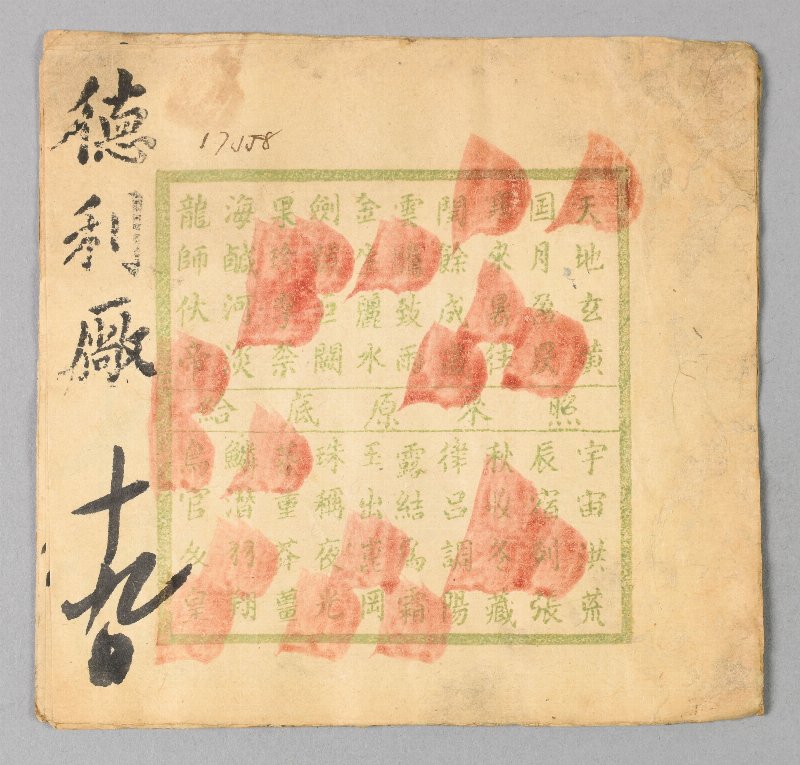 17558
天地玄黃
囯月盈昃
來暑往
閏餘成歲
雲騰致雨
金生麗水
劍號巨闕
果珍李奈
海鹹河淡
龍師伏帝
照來原底給
宇宙洪荒
辰宿列張
秋收冬藏
律呂調陽
露結為霜
玉出崑岡
珠稱夜光
菜重芥薑
鱗潛羽翔
鳥官人皇
德利廠
十九日